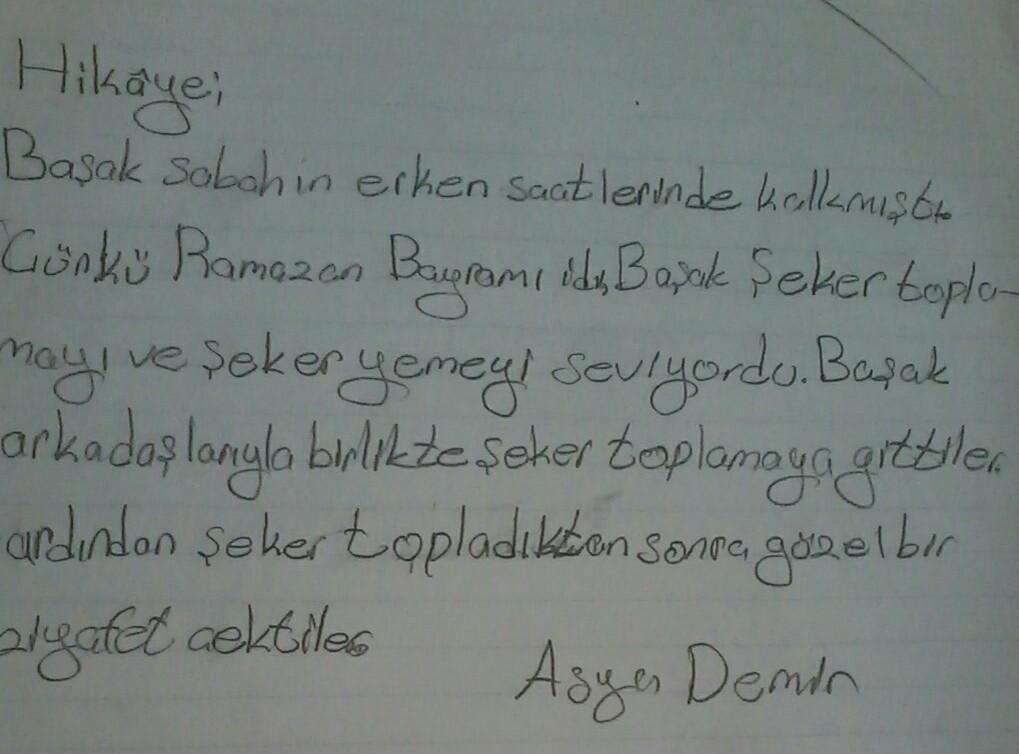 Hikâye;
Başak sabahın erken saatlerinde kalkmıştı.
Günkü Ramazan Bayramı idi, Başak Şeker topla-
mayı ve şeker yemeyi seviyordu. Başak
arkadaşlarıyla birlikte şeker toplamaya gittiler.
ardından şeker topladıktan sonra güzel bir
ziyafet çektiler.
Asya Demir